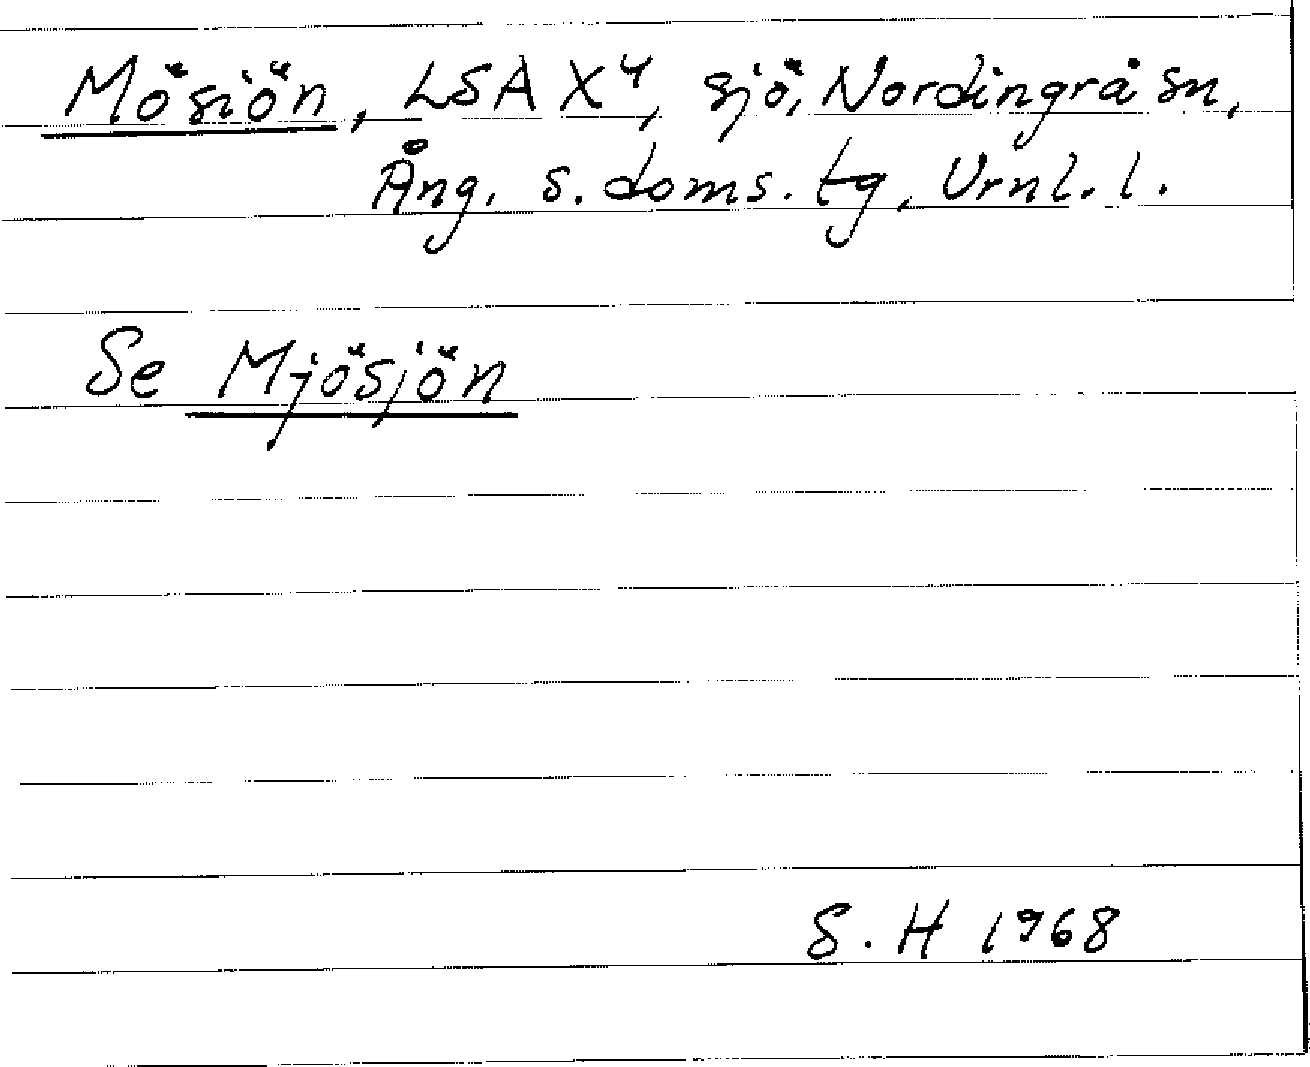 Mösiön, LSA X4, sjö, Nordingrå sn,
Ång. s. doms. tg, Urnl. l.
Se Mjösjön
S. H 1968